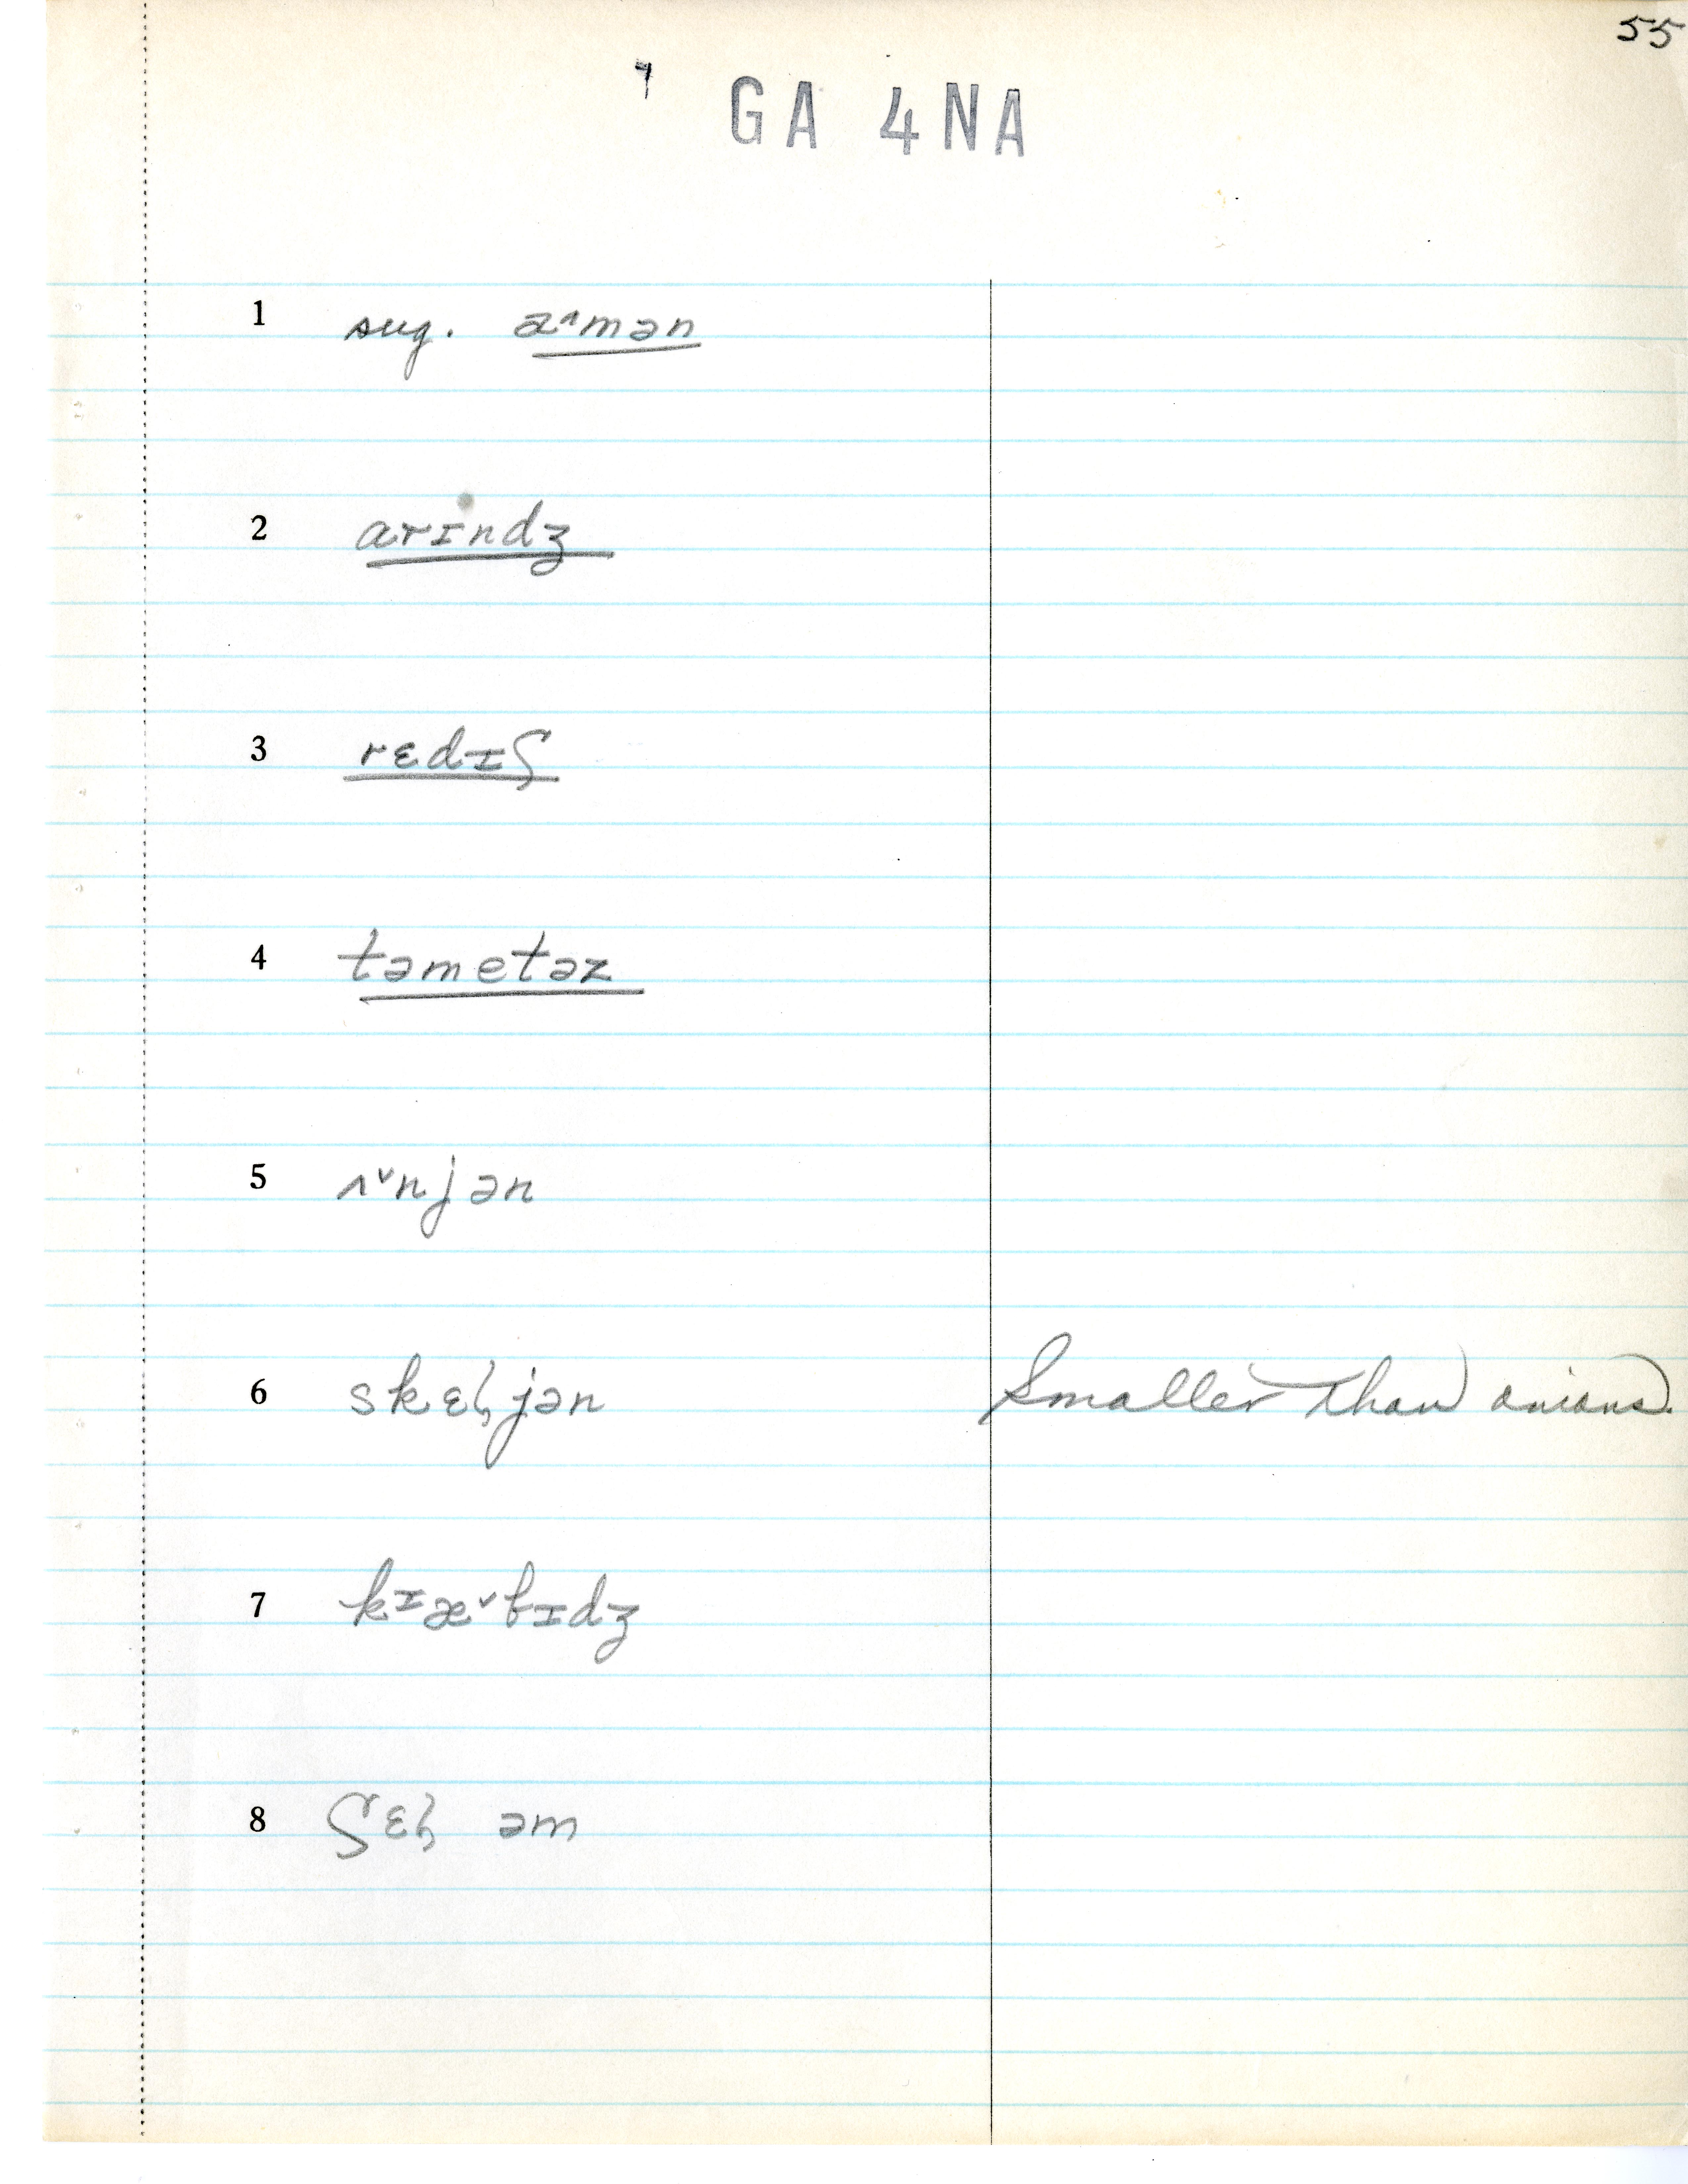 55
GA 4NA
1 sug. a˄mən
2 arɪndʒ
3 rɛdɪʃ
4 təmetəz
5 ʌ˅njən
6 skɛɫjən Smaller than onions.
7 kɪæ˅bɪdʒ
8 ʃɛɫ əm